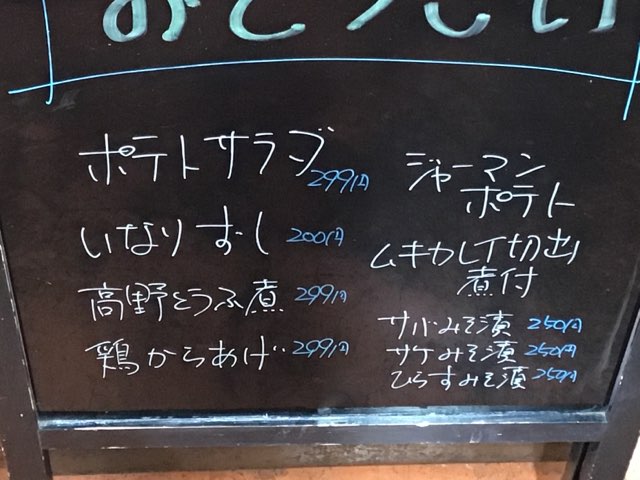 おとうしい
ポテトサラダ 299円
いなりずし 200円
高野とうふ煮 299円
鶏からあげ 299円
ジャーマン
ポテト
ムキカレイ切出
煮付
サバみそ漬 250円
サケみそ漬 250円
ひらすみそ漬 250円